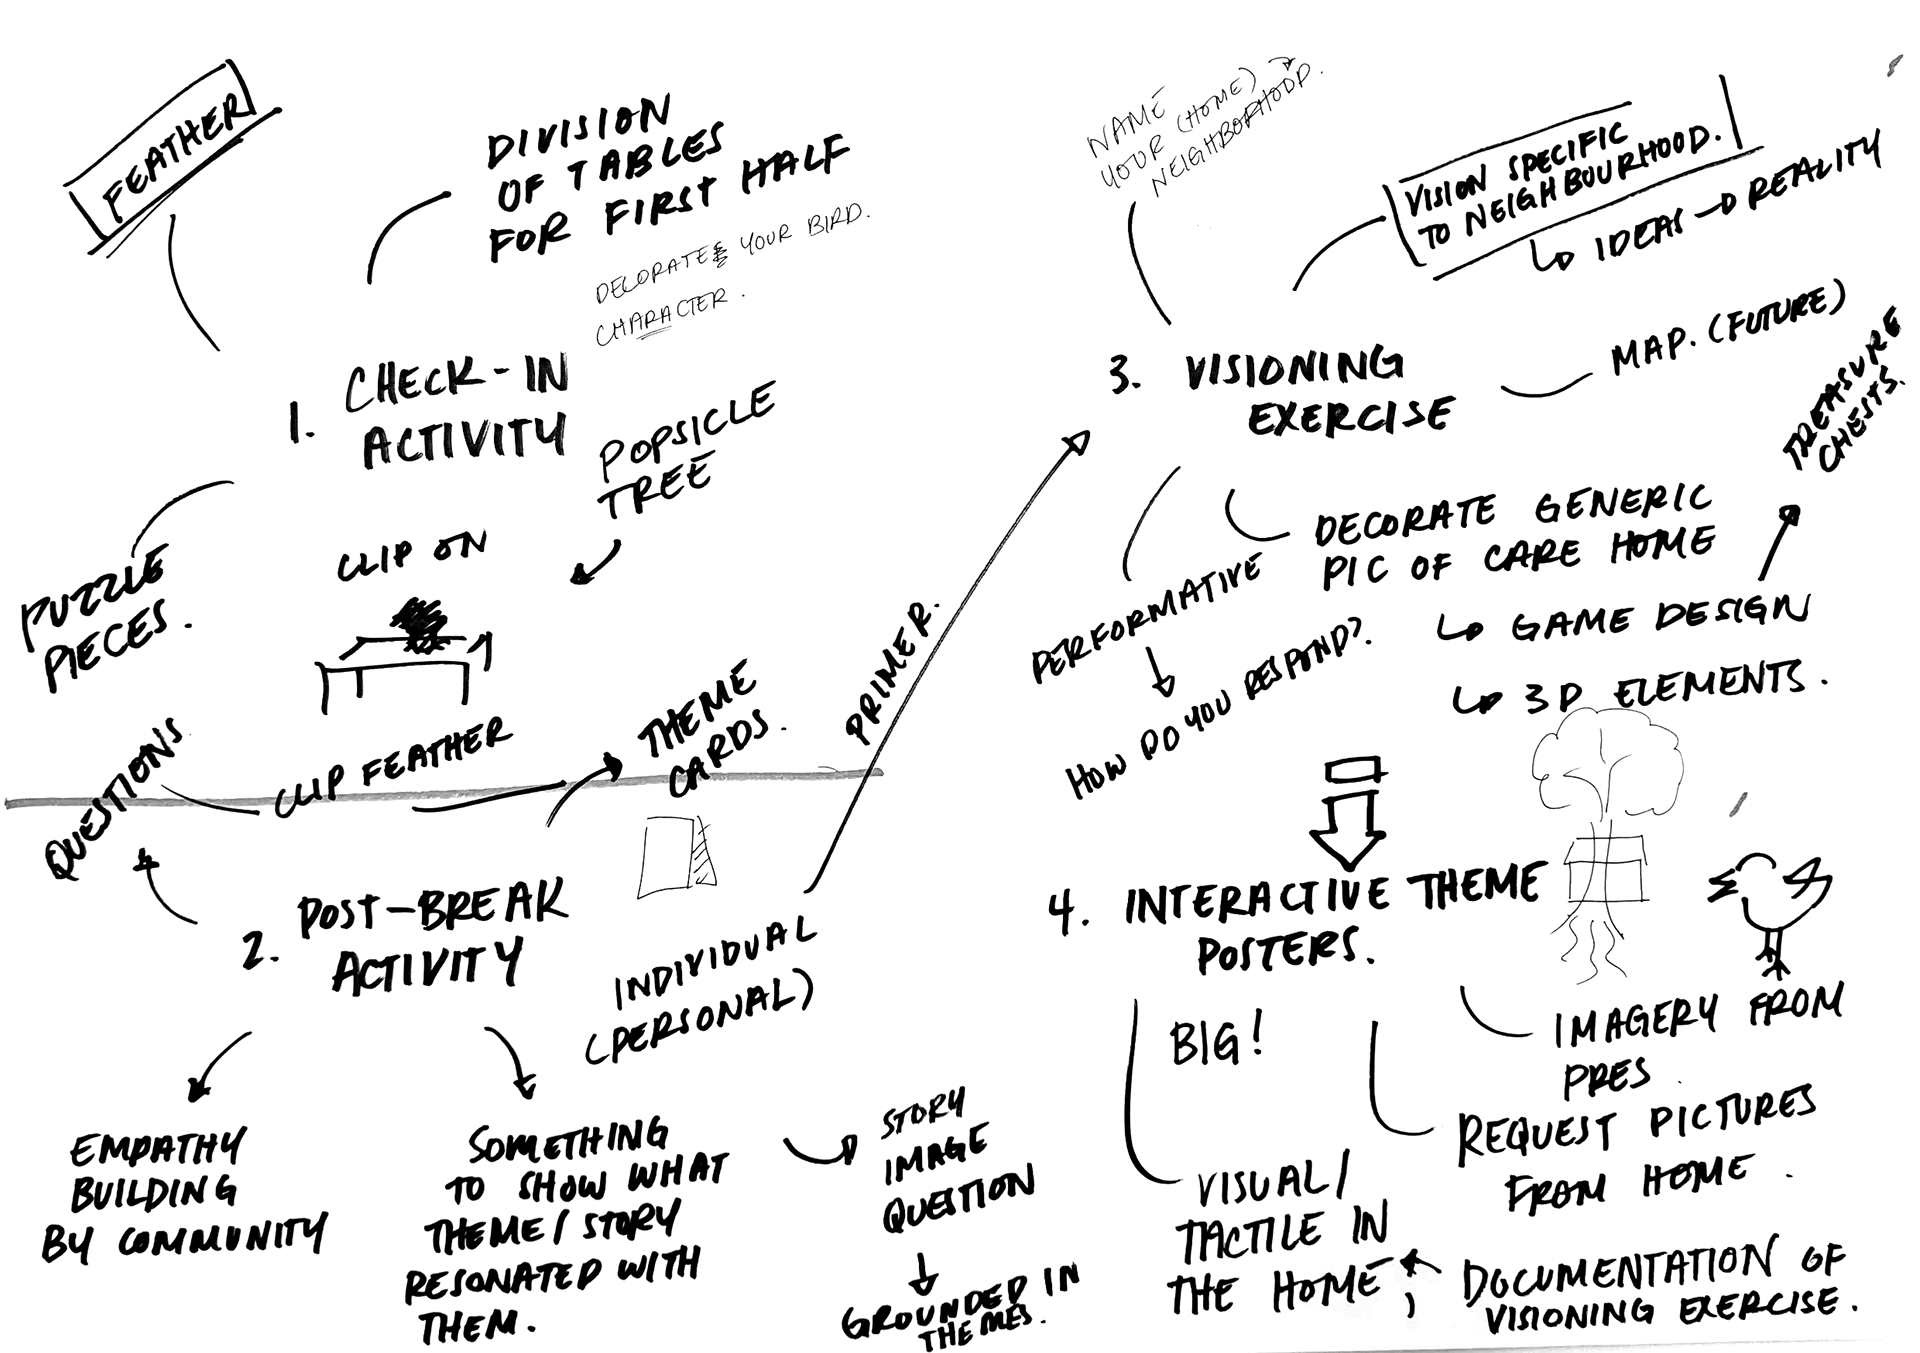 FEATHER
DIVISION
OF TABLES
FOR FIRST HALF
DECORATE YOUR BIRD.
CHARACTER.
1. CHECK-IN
ACTIVITY
POPSICLE
TREE
PUZZLE
PIECES.
CLIP ON
QUESTIONS
CLIP FEATHER
THEME
CARDS.
2. POST-BREAK
ACTIVITY
INDIVIDUAL
(PERSONAL)
PRIMER.
EMPATHY
BUILDING
BY COMMUNITY
SOMETHING
TO SHOW WHAT
THEME/STORY
RESONATED WITH
THEM.
STORY
IMAGE
QUESTION
GROUNDED IN
THEMES.
NAME
YOUR (HOME)
NEIGHBORHOOD.
VISION SPECIFIC
TO NEIGHBOURHOOD.
IDEAS → REALITY
3. VISIONING
EXERCISE
MAP. (FUTURE)
TREASURE
CHESTS.
DECORATE GENERIC
PIC OF CARE HOME
GAME DESIGN
3D ELEMENTS.
PERFORMATIVE
HOW DO YOU RESPOND?
4. INTERACTIVE THEME
POSTERS.
BIG!
IMAGERY FROM
PRES.
REQUEST PICTURES
FROM HOME.
VISUAL/
TACTILE IN
THE HOME
DOCUMENTATION OF
VISIONING EXERCISE.